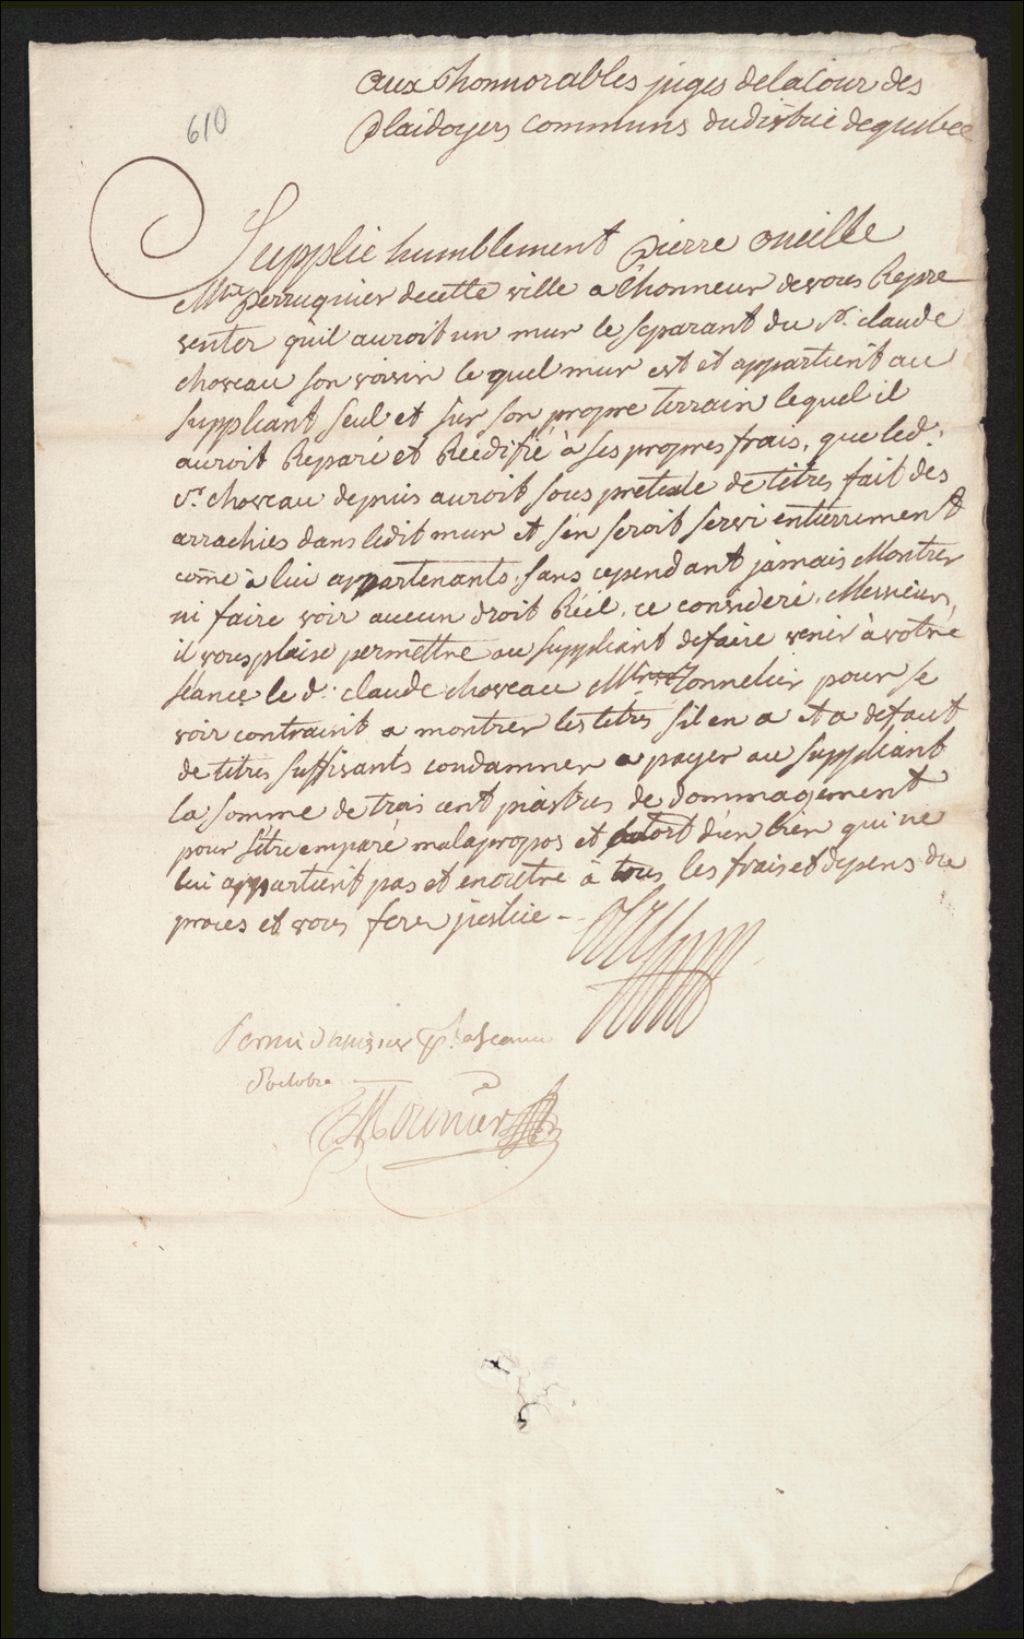 aux honnorables juges de la Cour des
610
plaidoyers communs du district de quebec
Supplie humblement pierre oneille
Mtre perruquier de cette ville a l'honneur de vous Repre
senter qu'il auroit un mur le separant du Sr. claude
choreau son voisin le quel mur est et appartient au
suppliant seul et sur son propre terrain lequel il
auroit Reparé et Réédifié à ses propres frais, que led.
Sr. choreau depuis auroit sous pretexte de titres fait des
arrachies dans ledit mur et s'en seroit servi entierrement
come à lui appartenants, sans cependant jamais Montrer
ni faire voir aucun droit Réél. ce consideré. Messieurs,
il vous plaise permettre au suppliant de faire venir à votre
séance le d. claude choreau Mtre Tonnelier pour se
voir contraint a montrer les titres s'il en a et a defaut
de titres suffisants condamner a payer au suppliant
la somme de trois cent piastres de dommagement
pour s'être emparé mal a propos et tort d'un bien qui ne
lui appartient pas et en outre à tous les frais et depens du
proces et vous ferez justice -
Permis d'assigner
8 octobre
Mounier